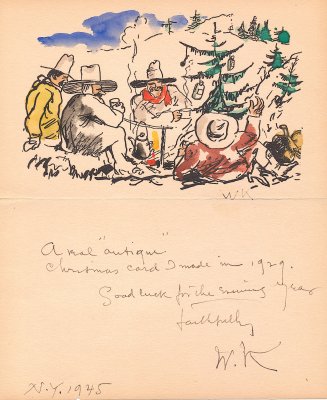 WK
A real "antique"
Christmas card I made in 1929.
Good luck for the ensuing year
faithfully
W. K
N.Y. 1945